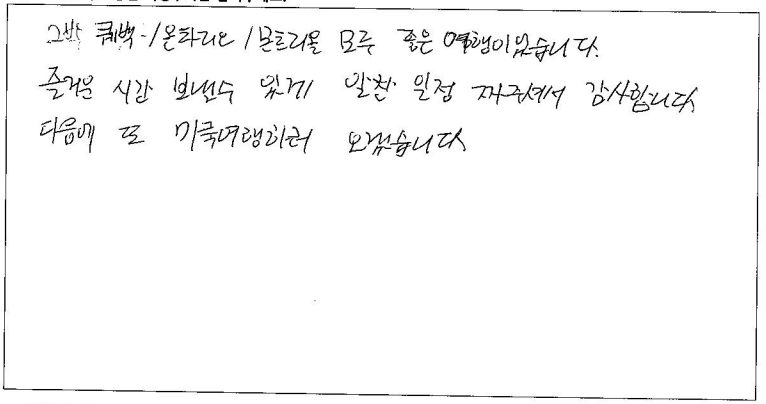 퀘백-/온타리오/몬트리올 모두 좋은 여행이었습니다.
즐거운 시간 보낼수 있게 알찬 일정 짜주셔서 감사합니다
다음에 또 미국여행하러 오겠습니다